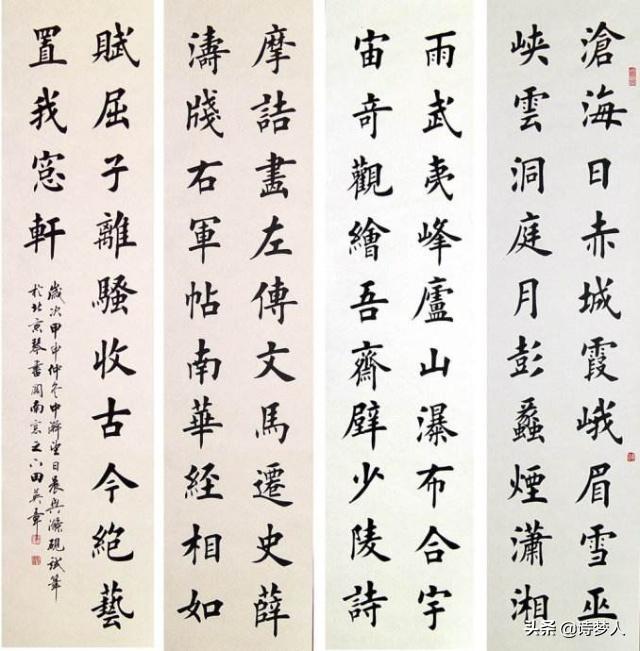 滄海日赤城霞峨眉雪巫
峽雲洞庭月彭蠡煙瀟湘
雨武夷峰廬山瀑布合宇
宙奇觀繪吾齋壁少陵詩
摩詰畫左傳文馬遷史薛
濤牋右軍帖南華經相如
賦屈子離騷收古今絶藝
置我窓軒
歲次甲申仲冬中澣望日晨興滌硯試筆
於北京琴書閣南窓之下田英章
头条 @诗梦人